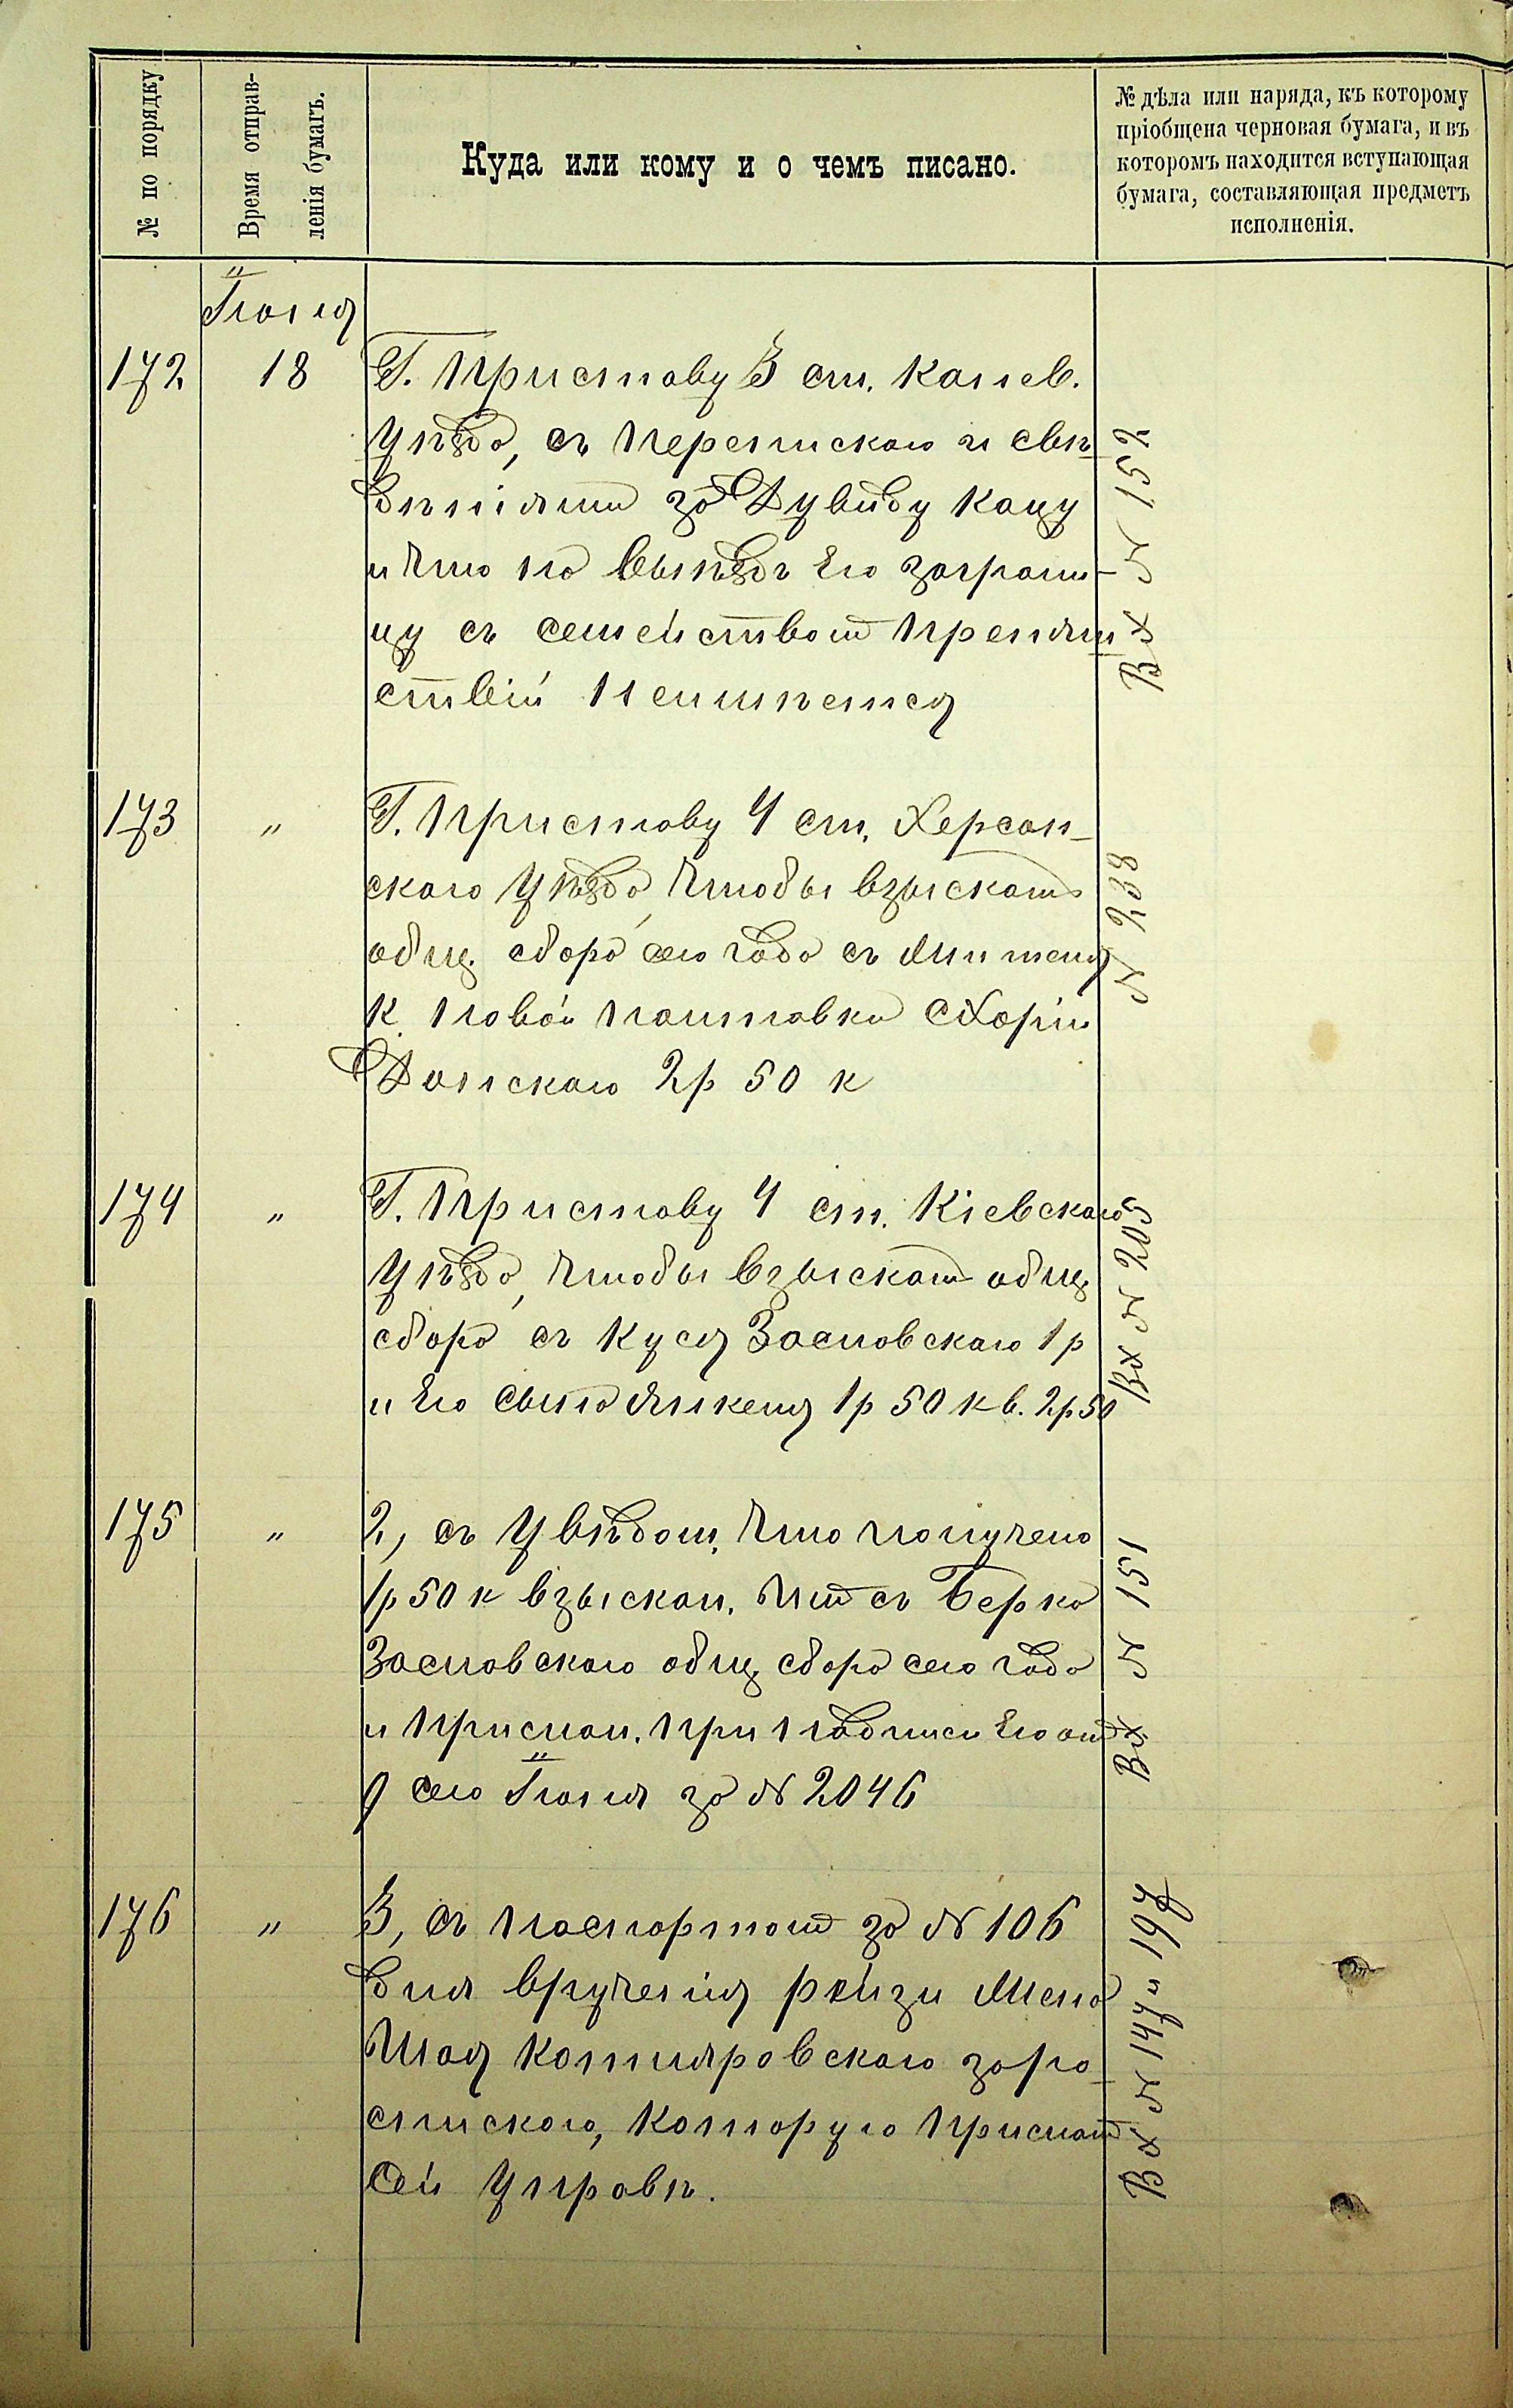 № по порядку
Время отправ-
ленія бумагъ.
Куда или кому и о чемъ писано.
№ дѣла или наряда, къ которому
пріобщена черновая бумага, и въ
которомъ находится вступающая
бумага, составляющая предметъ
исполненія.
Іюля
172
18
Г. Приставу 3 ст. Канев.
уѣзда, съ перепискою и свѣ-
дѣніями за Дувиду Кацу
и что на выѣздъ его заграни-
цу съ семействомъ препят
ствій неимѣется
Вх № 152
173
"
Г. Приставу 4 ст. Херсон-
скаго уѣзда, чтобы взыскать
общ. сбора сего года съ
к. Новой
Донскаго 2 р 50 к
№ 238
174
"
Г. Приставу 4 ст. Кіевскаго
уѣзда, чтобы взыскат общ
сбора съ Куся Заславскаго 1 р
и его сына Янкеля 1 р 50 к в. 2 р 50
Вх № 205
175
"
2, съ увѣдом. что получено
1 р 50 к взыскан. имъ съ Берка
Заславскаго общ сбора сего года
и прислан. при надписи его от
9 сего Іюля за № 2046
Вх № 151
176
"
3, съ паспортом за № 106
для врученія рейзи
Котляровскаго за ро-
спискою, которую прислат
сей управѣ.
Вх № 147 и 197